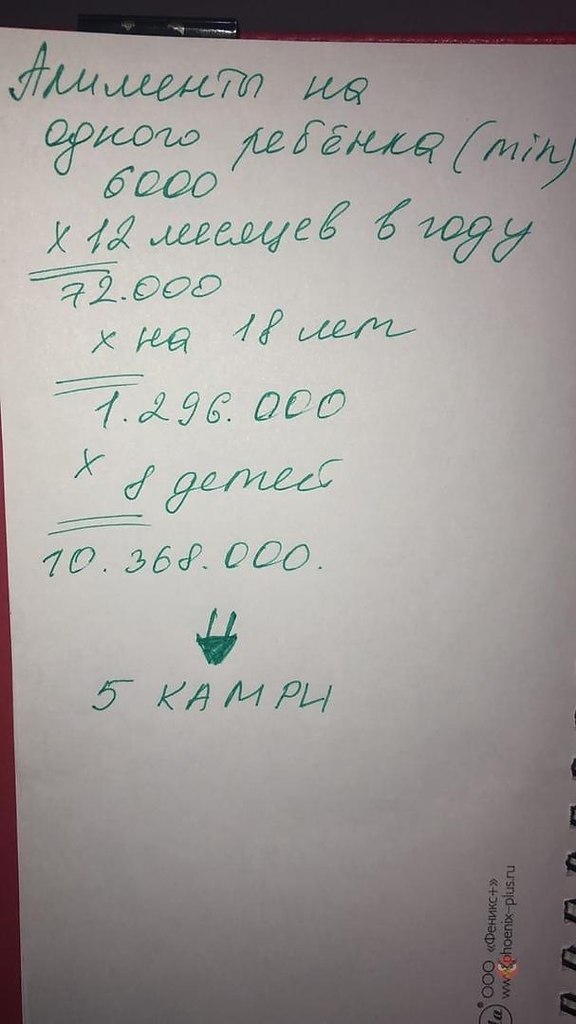 Алименты на
одного ребёнка (min)
6000
x 12 месяцев в году
72.000
x на 18 лет
1.296.000
x 8 детей
10.368.000.
5 КАМРИ
ООО «Феникс+»
www.phoenix-plus.ru